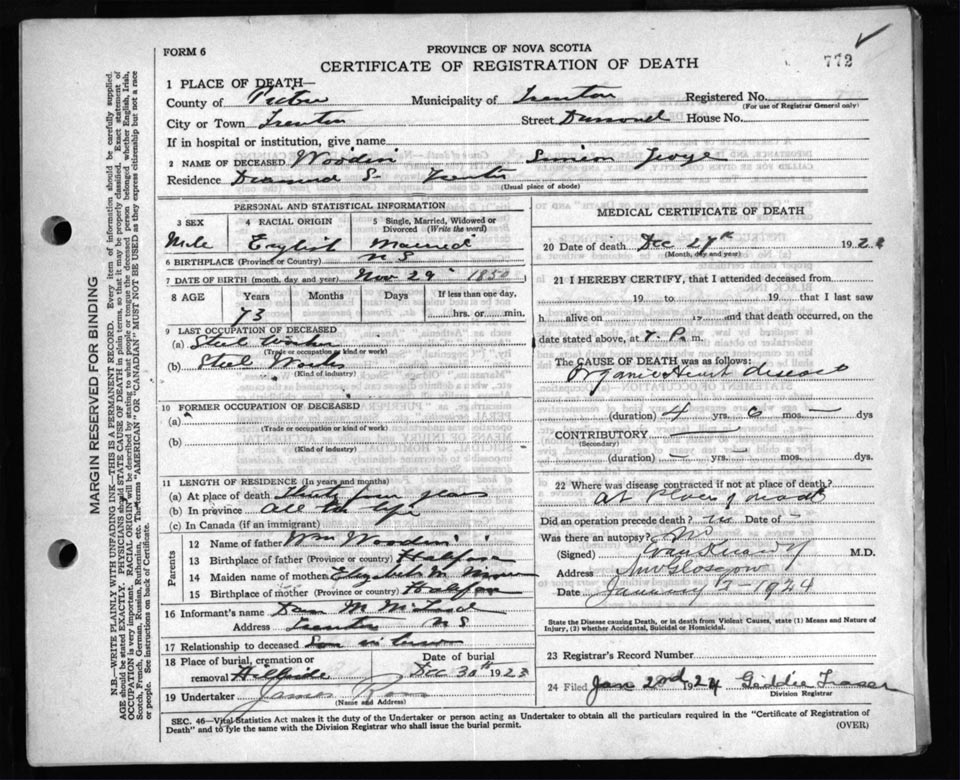 FORM 6
PROVINCE OF NOVA SCOTIA
CERTIFICATE OF REGISTRATION OF DEATH
772
1 PLACE OF DEATH—
County of Pictou Municipality of Trenton Registered No.
(For use of Registrar General only)
City or Town Trenton Street House No.
If in hospital or institution, give name
2 NAME OF DECEASED Wooden Simeon
Residence Diamond S- Trenton
(Usual place of abode)
PERSONAL AND STATISTICAL INFORMATION
3 SEX 4 RACIAL ORIGIN 5 Single, Married, Widowed or Divorced (Write the word)
Male English Married
6 BIRTHPLACE (Province or Country) N S
7 DATE OF BIRTH (month, day and year) Nov 29 1850
8 AGE Years Months Days If less than one day,
73 hrs. or min.
9 LAST OCCUPATION OF DECEASED
(a) Steel Worker
(Trade or occupation or kind or work)
(b) Steel Works
(Kind of industry)
10 FORMER OCCUPATION OF DECEASED
(a)
(Trade or occupation or kind of work)
(b)
(Kind of industry)
11 LENGTH OF RESIDENCE (In years and months)
(a) At place of death Thirty four years
(b) In province all his life
(c) In Canada (if an immigrant)
Parents
12 Name of father Wm Wooden
13 Birthplace of father (Province or country) Halifax
14 Maiden name of mother Elizabeth M
15 Birthplace of mother (Province or country) Halifax
16 Informant's name Dan M McLeod
Address Trenton N S
17 Relationship to deceased Son in law
18 Place of burial, cremation or removal Hillside Date of burial Dec 30th 1923
19 Undertaker James Ross
(Name and Address)
MEDICAL CERTIFICATE OF DEATH
20 Date of death Dec 27th 192
(Month, day and year)
21 I HEREBY CERTIFY, that I attended deceased from
19 to 19 that I last saw
h alive on 19 and that death occurred, on
date stated above, at 7. P. m.
The CAUSE OF DEATH was as follows:
Organic Heart disease
(duration) 4 yrs. 0 mos. — dys
CONTRIBUTORY —
(Secondary)
(duration) — yrs. — mos. dys
22 Where was disease contracted if not at place of death?
at place of death
Did an operation precede death? no Date of -
Was there an autopsy? No
(Signed) M.D.
Address New Glasgow
Date January 2 - 1924
State the Disease causing Death, or in death from Violent Causes, state (1) Means and Nature of
Injury, (2) whether Accidental, Suicidal or Homicidal.
23 Registrar's Record Number
24 Filed Jan 2nd 1924 Fraser
Division Registrar
SEC. 46—Vital Statistics Act makes it the duty of the Undertaker or person acting as Undertaker to obtain all the particulars required in the "Certificate of Registration of
Death" and to fyle the same with the Division Registrar who shall issue the burial permit.
(OVER)
MARGIN RESERVED FOR BINDING
N.B.—WRITE PLAINLY WITH UNFADING INK—THIS IS A PERMANENT RECORD. Every item of information should be carefully supplied.
AGE should be stated EXACTLY. PHYSICIANS should STATE CAUSE OF DEATH in plain terms, so that it may be properly classified. Exact statement of
OCCUPATION is very important. RACIAL ORIGIN will be described by stating to what people or tongue the deceased person belonged whether English, Irish,
Scotch, French, German, Russian, Ruthenian, etc. The terms "AMERICAN" OR "CANADIAN" MUST NOT BE USED as they express citizenship but not a race
or people. See instructions on back of Certificate.